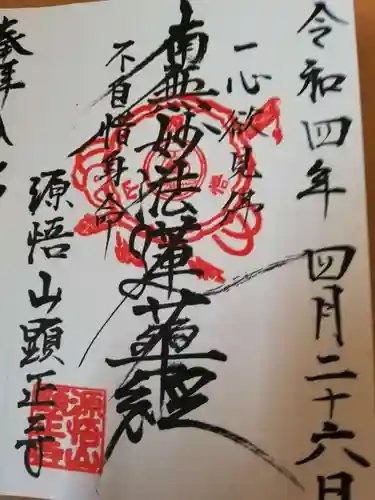 令和四年 四月二十六日
一心欲見佛
南無妙法蓮華経
不自惜身命
源悟山 顕正寺
奉拝